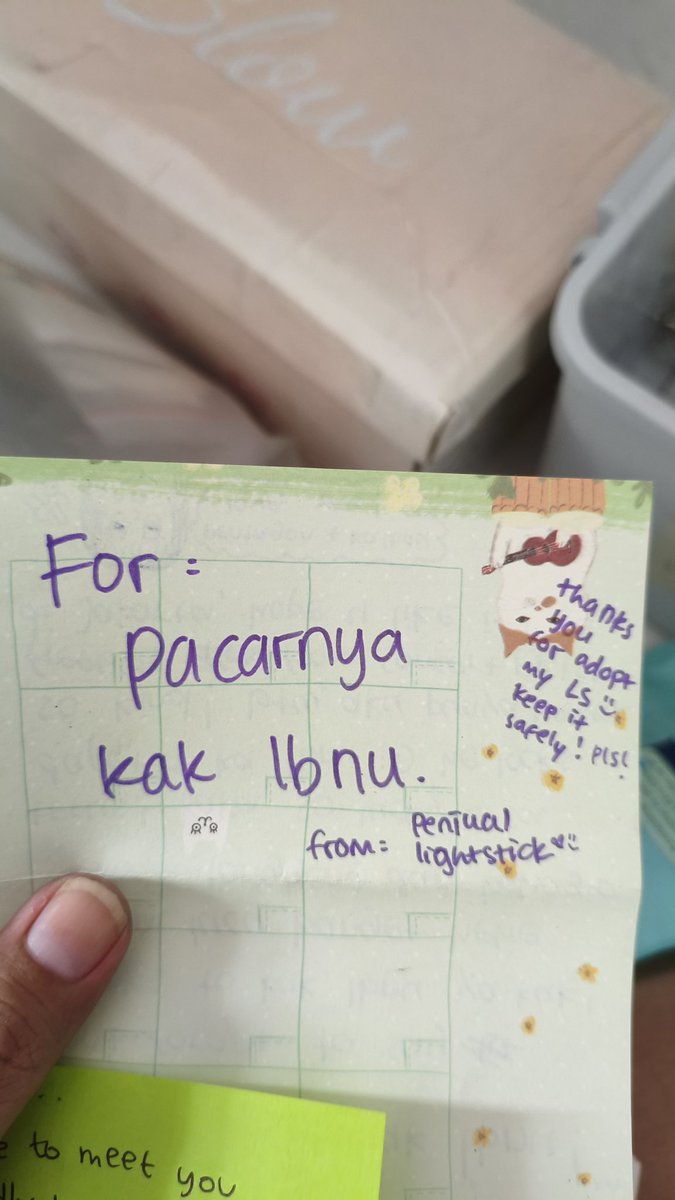 Slow
For :
pacarnya
kak Ibnu.
from: penjual
lightstick
thanks
you
for adopt
my LS
keep it
safely! pls!
...
to meet you